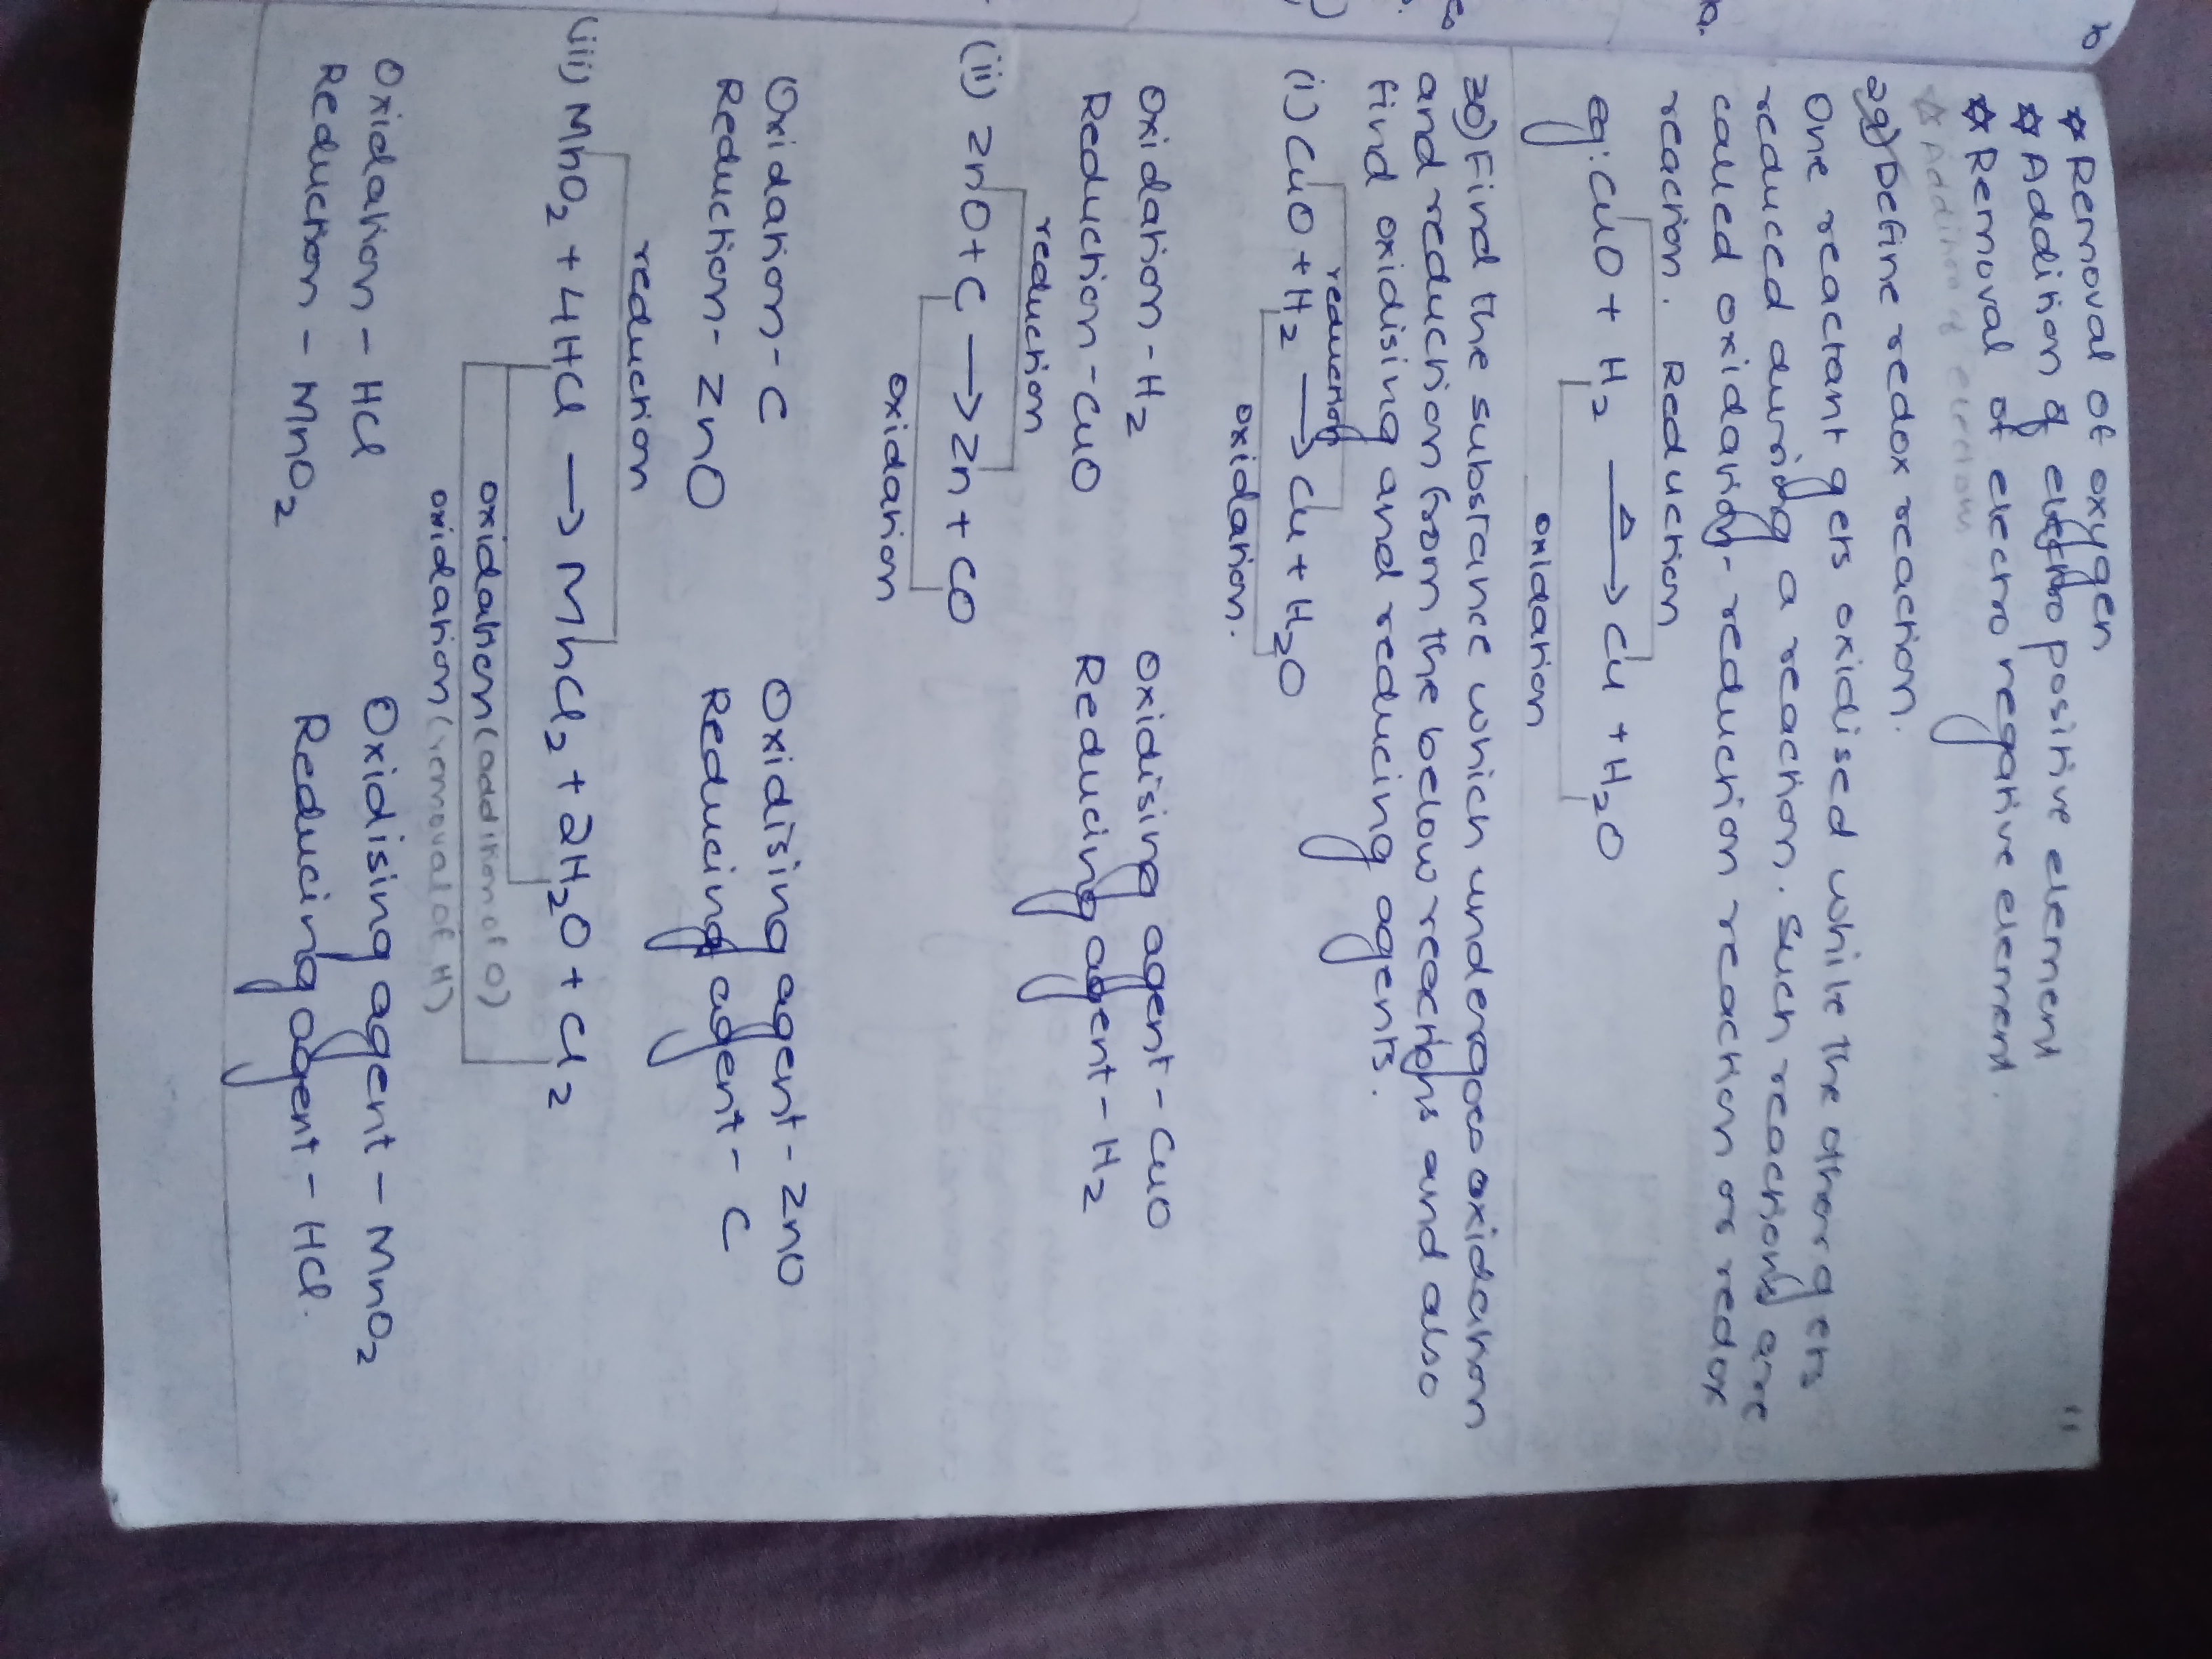 11
☆ Removal of oxygen
☆ Addition of electro positive element
☆ Removal of electro negative element.
☆ Addition of electron
29) Define redox reaction.
One reactant gets oxidised while the other gets
reduced during a reaction. Such reactions are
called oxidation-reduction reaction or redox
reaction.
Reduction
eg: CuO + H₂ —Δ→ Cu + H₂O
oxidation
30) Find the substance which undergoes oxidation
and reduction from the below reactions and also
find oxidising and reducing agents.
reduction
(i) CuO + H₂ → Cu + H₂O
oxidation.
Oxidation - H₂ Oxidising agent - CuO
Reduction - CuO Reducing agent - H₂
reduction
(ii) ZnO + C → Zn + CO
oxidation
Oxidation - C Oxidising agent - ZnO
Reduction - ZnO Reducing agent - C
reduction
(iii) MnO₂ + 4HCl → MnCl₂ + 2H₂O + Cl₂
oxidation (addition of O)
oxidation (removal of H)
Oxidation - HCl Oxidising agent - MnO₂
Reduction - MnO₂ Reducing agent - HCl.